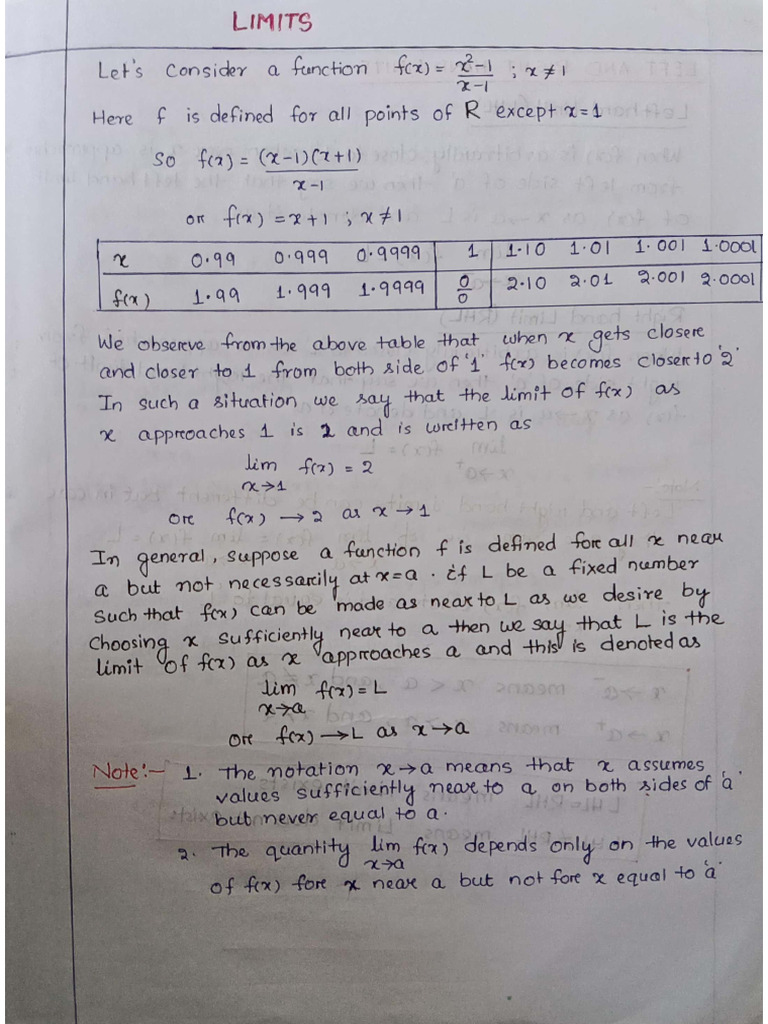 LIMITS
Let's consider a function f(x) = x²-1 / x-1 ; x ≠ 1
Here f is defined for all points of R except x=1
So f(x) = (x-1)(x+1) / x-1
or f(x) = x+1 ; x ≠ 1
x 0.99 0.999 0.9999 1 1.10 1.01 1.001 1.0001
f(x) 1.99 1.999 1.9999 0/0 2.10 2.01 2.001 2.0001
We observe from the above table that when x gets closer
and closer to 1 from both side of '1' f(x) becomes closer to '2'
In such a situation we say that the limit of f(x) as
x approaches 1 is 2 and is written as
lim f(x) = 2
x→1
or f(x) → 2 as x → 1
In general, suppose a function f is defined for all x near
a but not necessarily at x=a. if L be a fixed number
such that f(x) can be made as near to L as we desire by
choosing x sufficiently near to a then we say that L is the
limit of f(x) as x approaches a and this is denoted as
lim f(x) = L
x→a
or f(x) → L as x → a
Note:- 1. The notation x→a means that x assumes
values sufficiently near to a on both sides of 'a'
but never equal to a.
2. The quantity lim f(x) depends only on the values
x→a
of f(x) for x near a but not for x equal to 'a'